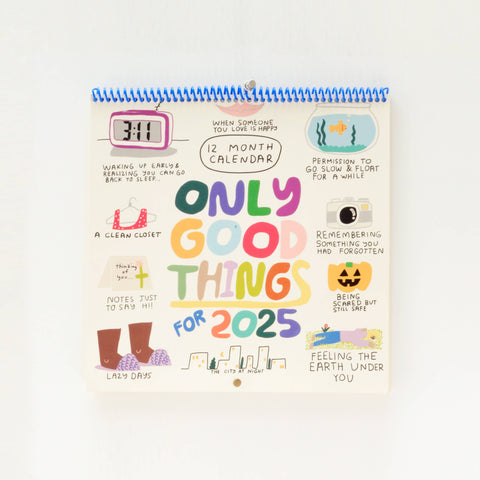 WHEN SOMEONE
YOU LOVE IS HAPPY
3:11
12 MONTH
CALENDAR
WAKING UP EARLY &
REALIZING YOU CAN GO
BACK TO SLEEP...
PERMISSION TO
GO SLOW & FLOAT
FOR A WHILE
ONLY
GOOD
THINGS
FOR 2025
A CLEAN CLOSET
REMEMBERING
SOMETHING YOU
HAD FORGOTTEN
Thinking
of you...
NOTES JUST
TO SAY HI!
BEING
SCARED BUT
STILL SAFE
LAZY DAYS
THE CITY AT NIGHT
FEELING THE
EARTH UNDER
YOU